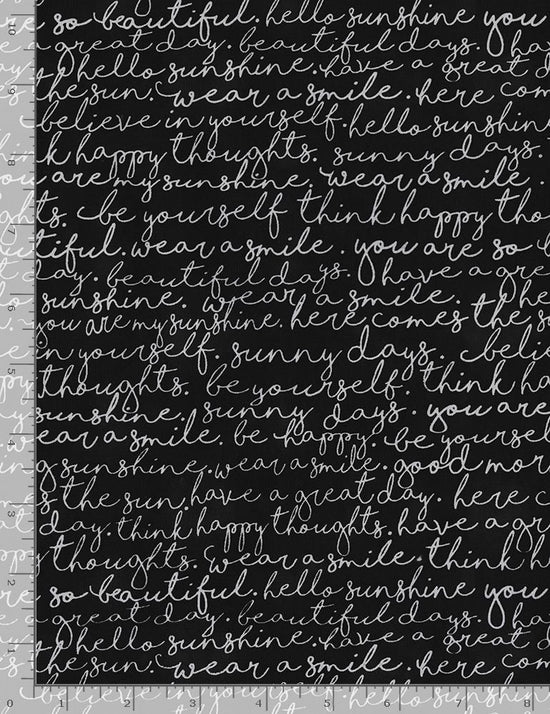 re so beautiful. hello sunshine you
e a great day. beautiful days. ha
ay. hello sunshine. have a great d
s the sun. wear a smile. here com
believe in yourself. hello sunshin
nk happy thoughts. sunny days.
ou are my sunshine. wear a smile.
ghts. be yourself think happy tho
utiful. wear a smile. you are so b
t day. beautiful days. have a gre
lo sunshine. wear a smile. he
you are my sunshine. here comes the s
e in yourself. sunny days. beli
ppy thoughts. be yourself. think ha
sunshine. sunny days. you are
wear a smile. be happy. be yoursel
ing sunshine. wear a smile. good mor
s the sun. have a great day. here c
at day. think happy thoughts. have a gr
ppy thoughts. wear a smile. think h
re so beautiful. hello sunshine you
e a great day. beautiful days. ha
ay. hello sunshine. have a great d
s the sun. wear a smile. here com
believe in yourself. hello sunshin
10
9
8
7
6
5
4
3
2
1
0 1 2 3 4 5 6 7 8